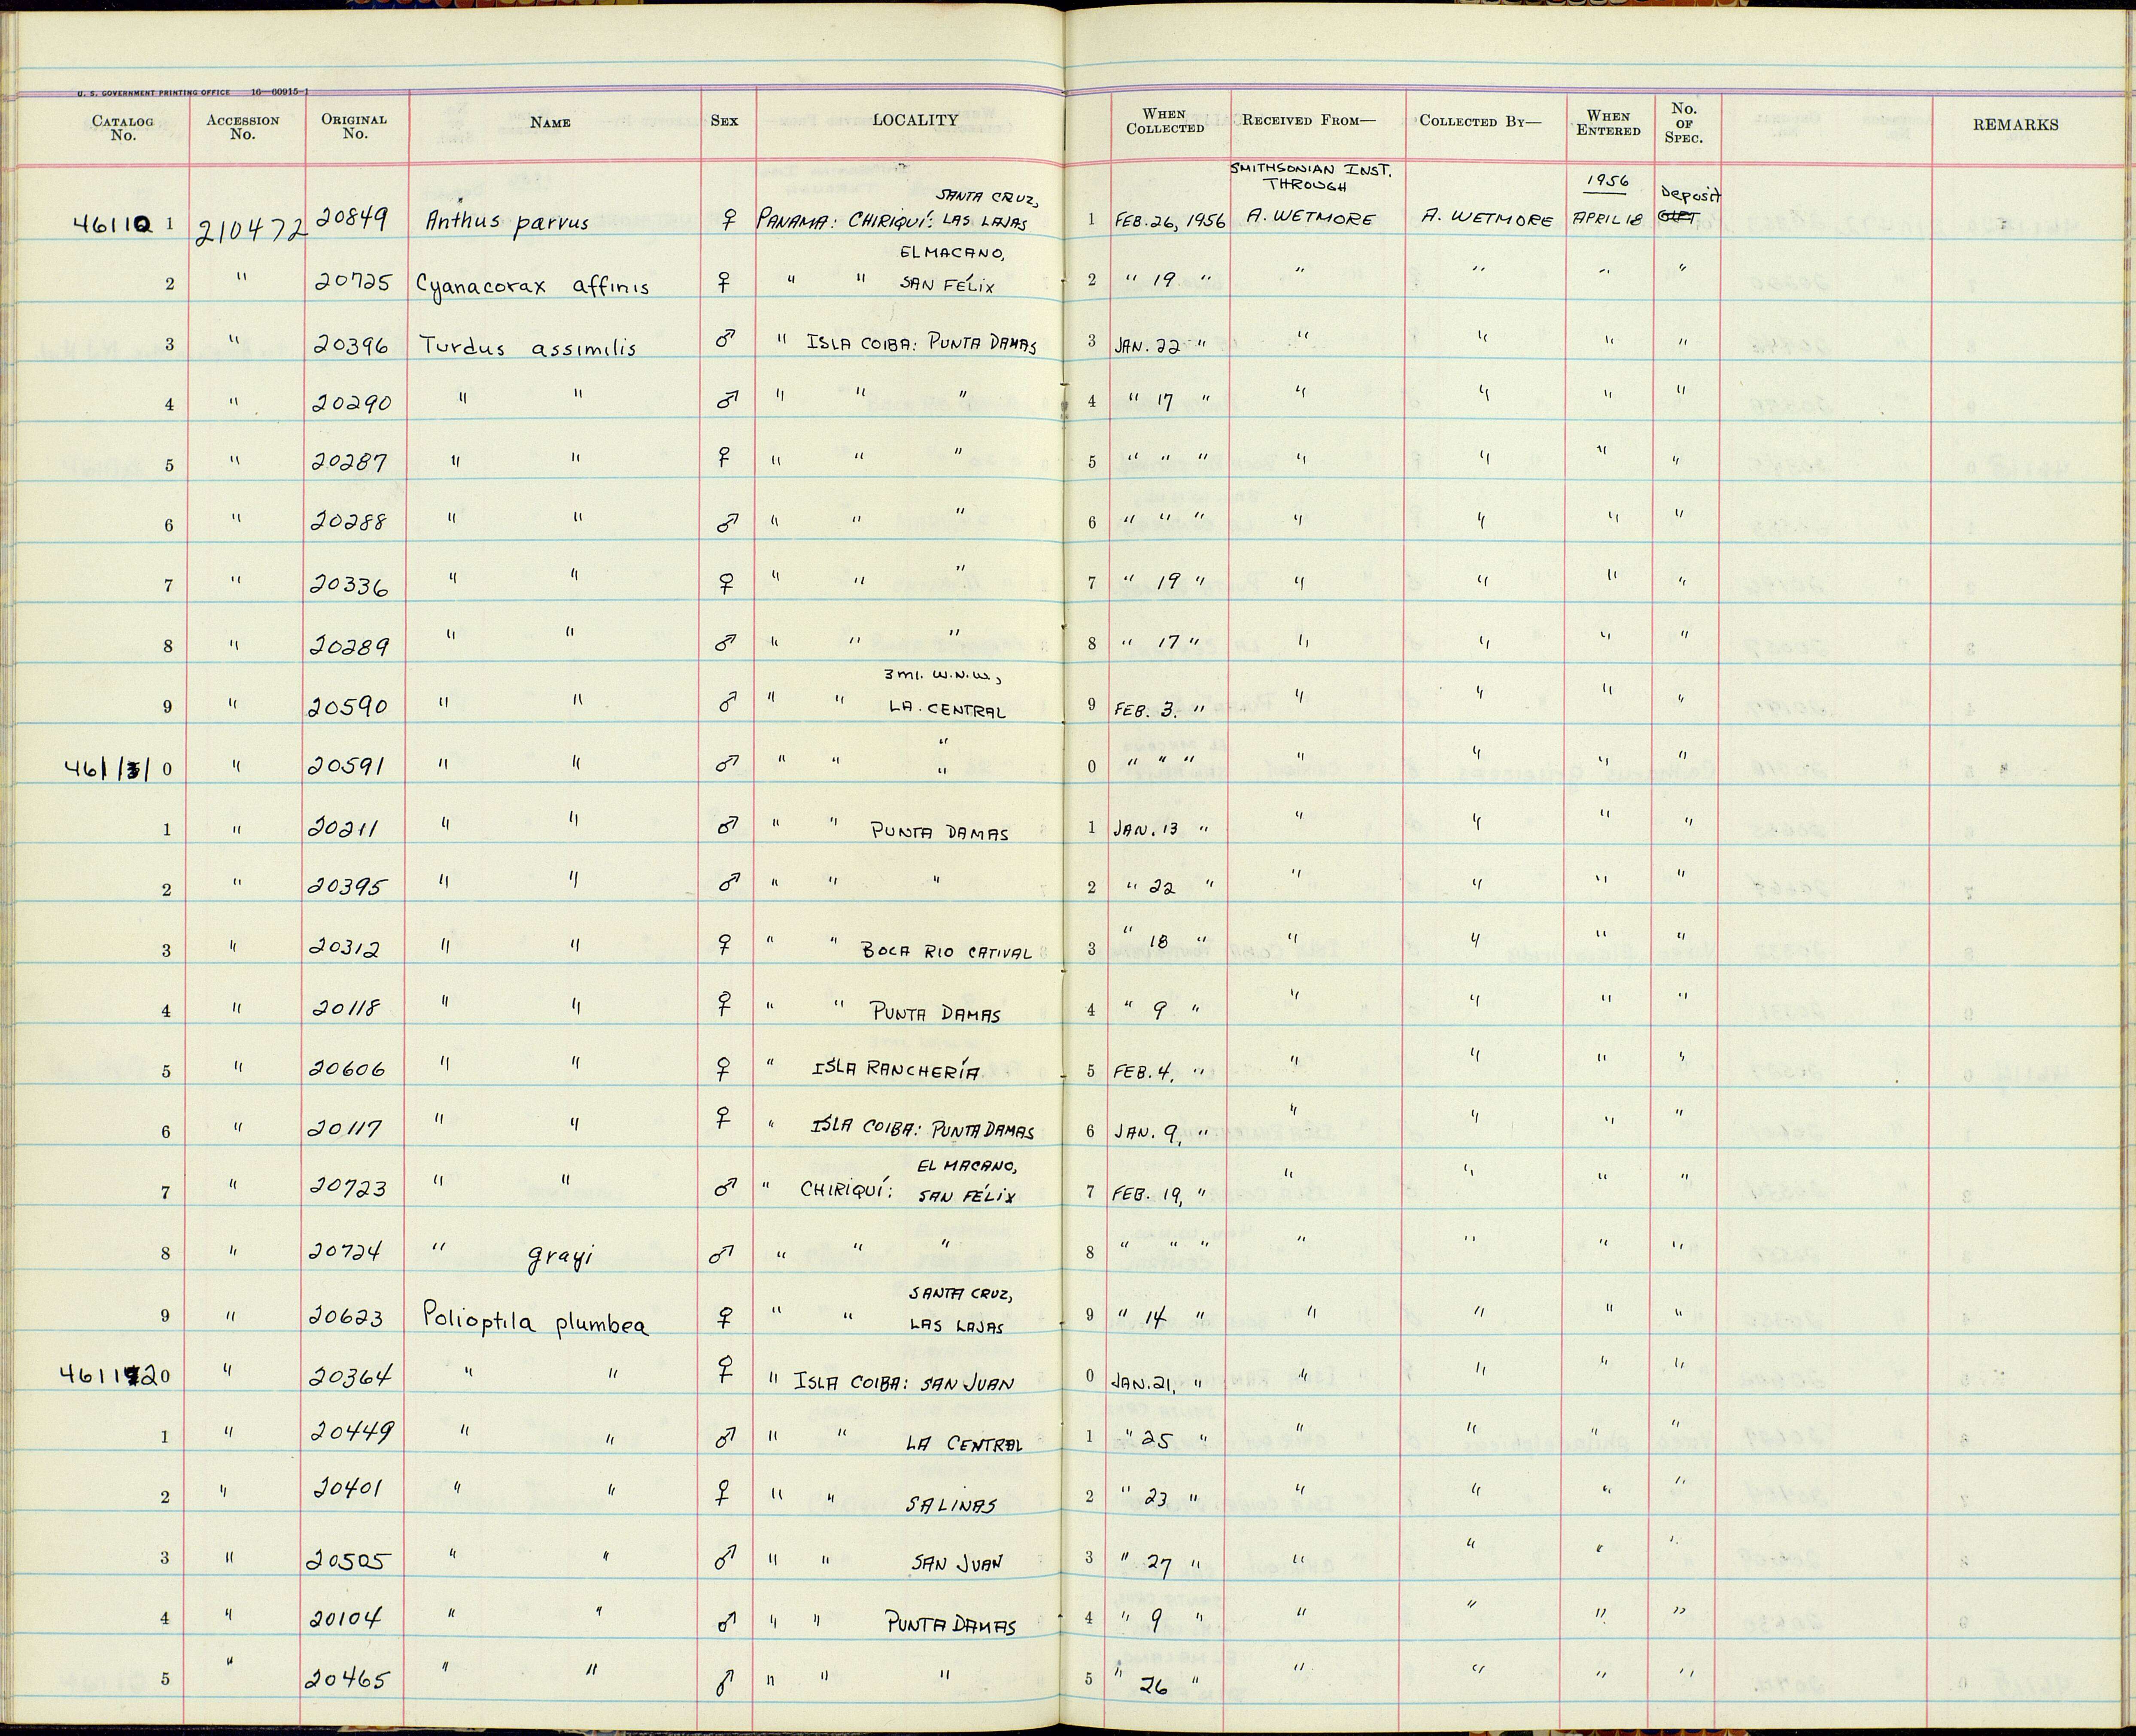 U. S. GOVERNMENT PRINTING OFFICE 16—60915-1
CATALOG No. ACCESSION No. ORIGINAL No. NAME SEX LOCALITY WHEN COLLECTED RECEIVED FROM— COLLECTED BY— WHEN ENTERED No. OF SPEC. REMARKS
SMITHSONIAN INST. THROUGH 1956
SANTA CRUZ, Deposit
1 210472 20849 Anthus parvus ♀ PANAMA: CHIRIQUÍ: LAS LAJAS 1 FEB. 26, 1956 A. WETMORE A. WETMORE APRIL 18 GIFT
EL MACANO,
2 " 20725 Cyanacorax affinis ♀ " " SAN FÉLIX 2 " 19 " " " " "
3 " 20396 Turdus assimilis ♂ " ISLA COIBA: PUNTA DAMAS 3 JAN. 22 " " " " "
4 " 20290 " " ♂ " " " 4 " 17 " " " " "
5 " 20287 " " ♀ " " " 5 " " " " " " "
6 " 20288 " " ♂ " " " 6 " " " " " " "
7 " 20336 " " ♀ " " " 7 " 19 " " " " "
8 " 20289 " " ♂ " " " 8 " 17 " " " " "
3 MI. W.N.W.,
9 " 20590 " " ♂ " " LA CENTRAL 9 FEB. 3. " " " " "
"
0 " 20591 " " ♂ " " " 0 " " " " " " "
1 " 20211 " " ♂ " " PUNTA DAMAS 1 JAN. 13 " " " " "
2 " 20395 " " ♂ " " " 2 " 22 " " " " "
3 " 20312 " " ♀ " " BOCA RIO CATIVAL 3 " 18 " " " " "
4 " 20118 " " ♀ " " PUNTA DAMAS 4 " 9 " " " " "
5 " 20606 " " ♀ " ISLA RANCHERÍA 5 FEB. 4, " " " " "
6 " 20117 " " ♀ " ISLA COIBA: PUNTA DAMAS 6 JAN. 9, " " " " "
EL MACANO,
7 " 20723 " " ♂ " CHIRIQUÍ: SAN FÉLIX 7 FEB. 19, " " " " "
8 " 20724 " grayi ♂ " " " 8 " " " " " " "
SANTA CRUZ,
9 " 20623 Polioptila plumbea ♀ " " LAS LAJAS 9 " 14 " " " " "
0 " 20364 " " ♀ " ISLA COIBA: SAN JUAN 0 JAN. 21, " " " " "
1 " 20449 " " ♂ " " LA CENTRAL 1 " 25 " " " " "
2 " 20401 " " ♀ " " SALINAS 2 " 23 " " " " "
3 " 20505 " " ♂ " " SAN JUAN 3 " 27 " " " " "
4 " 20104 " " ♂ " " PUNTA DAMAS 4 " 9 " " " " "
5 " 20465 " " ♂ " " " 5 " 26 " " " " "